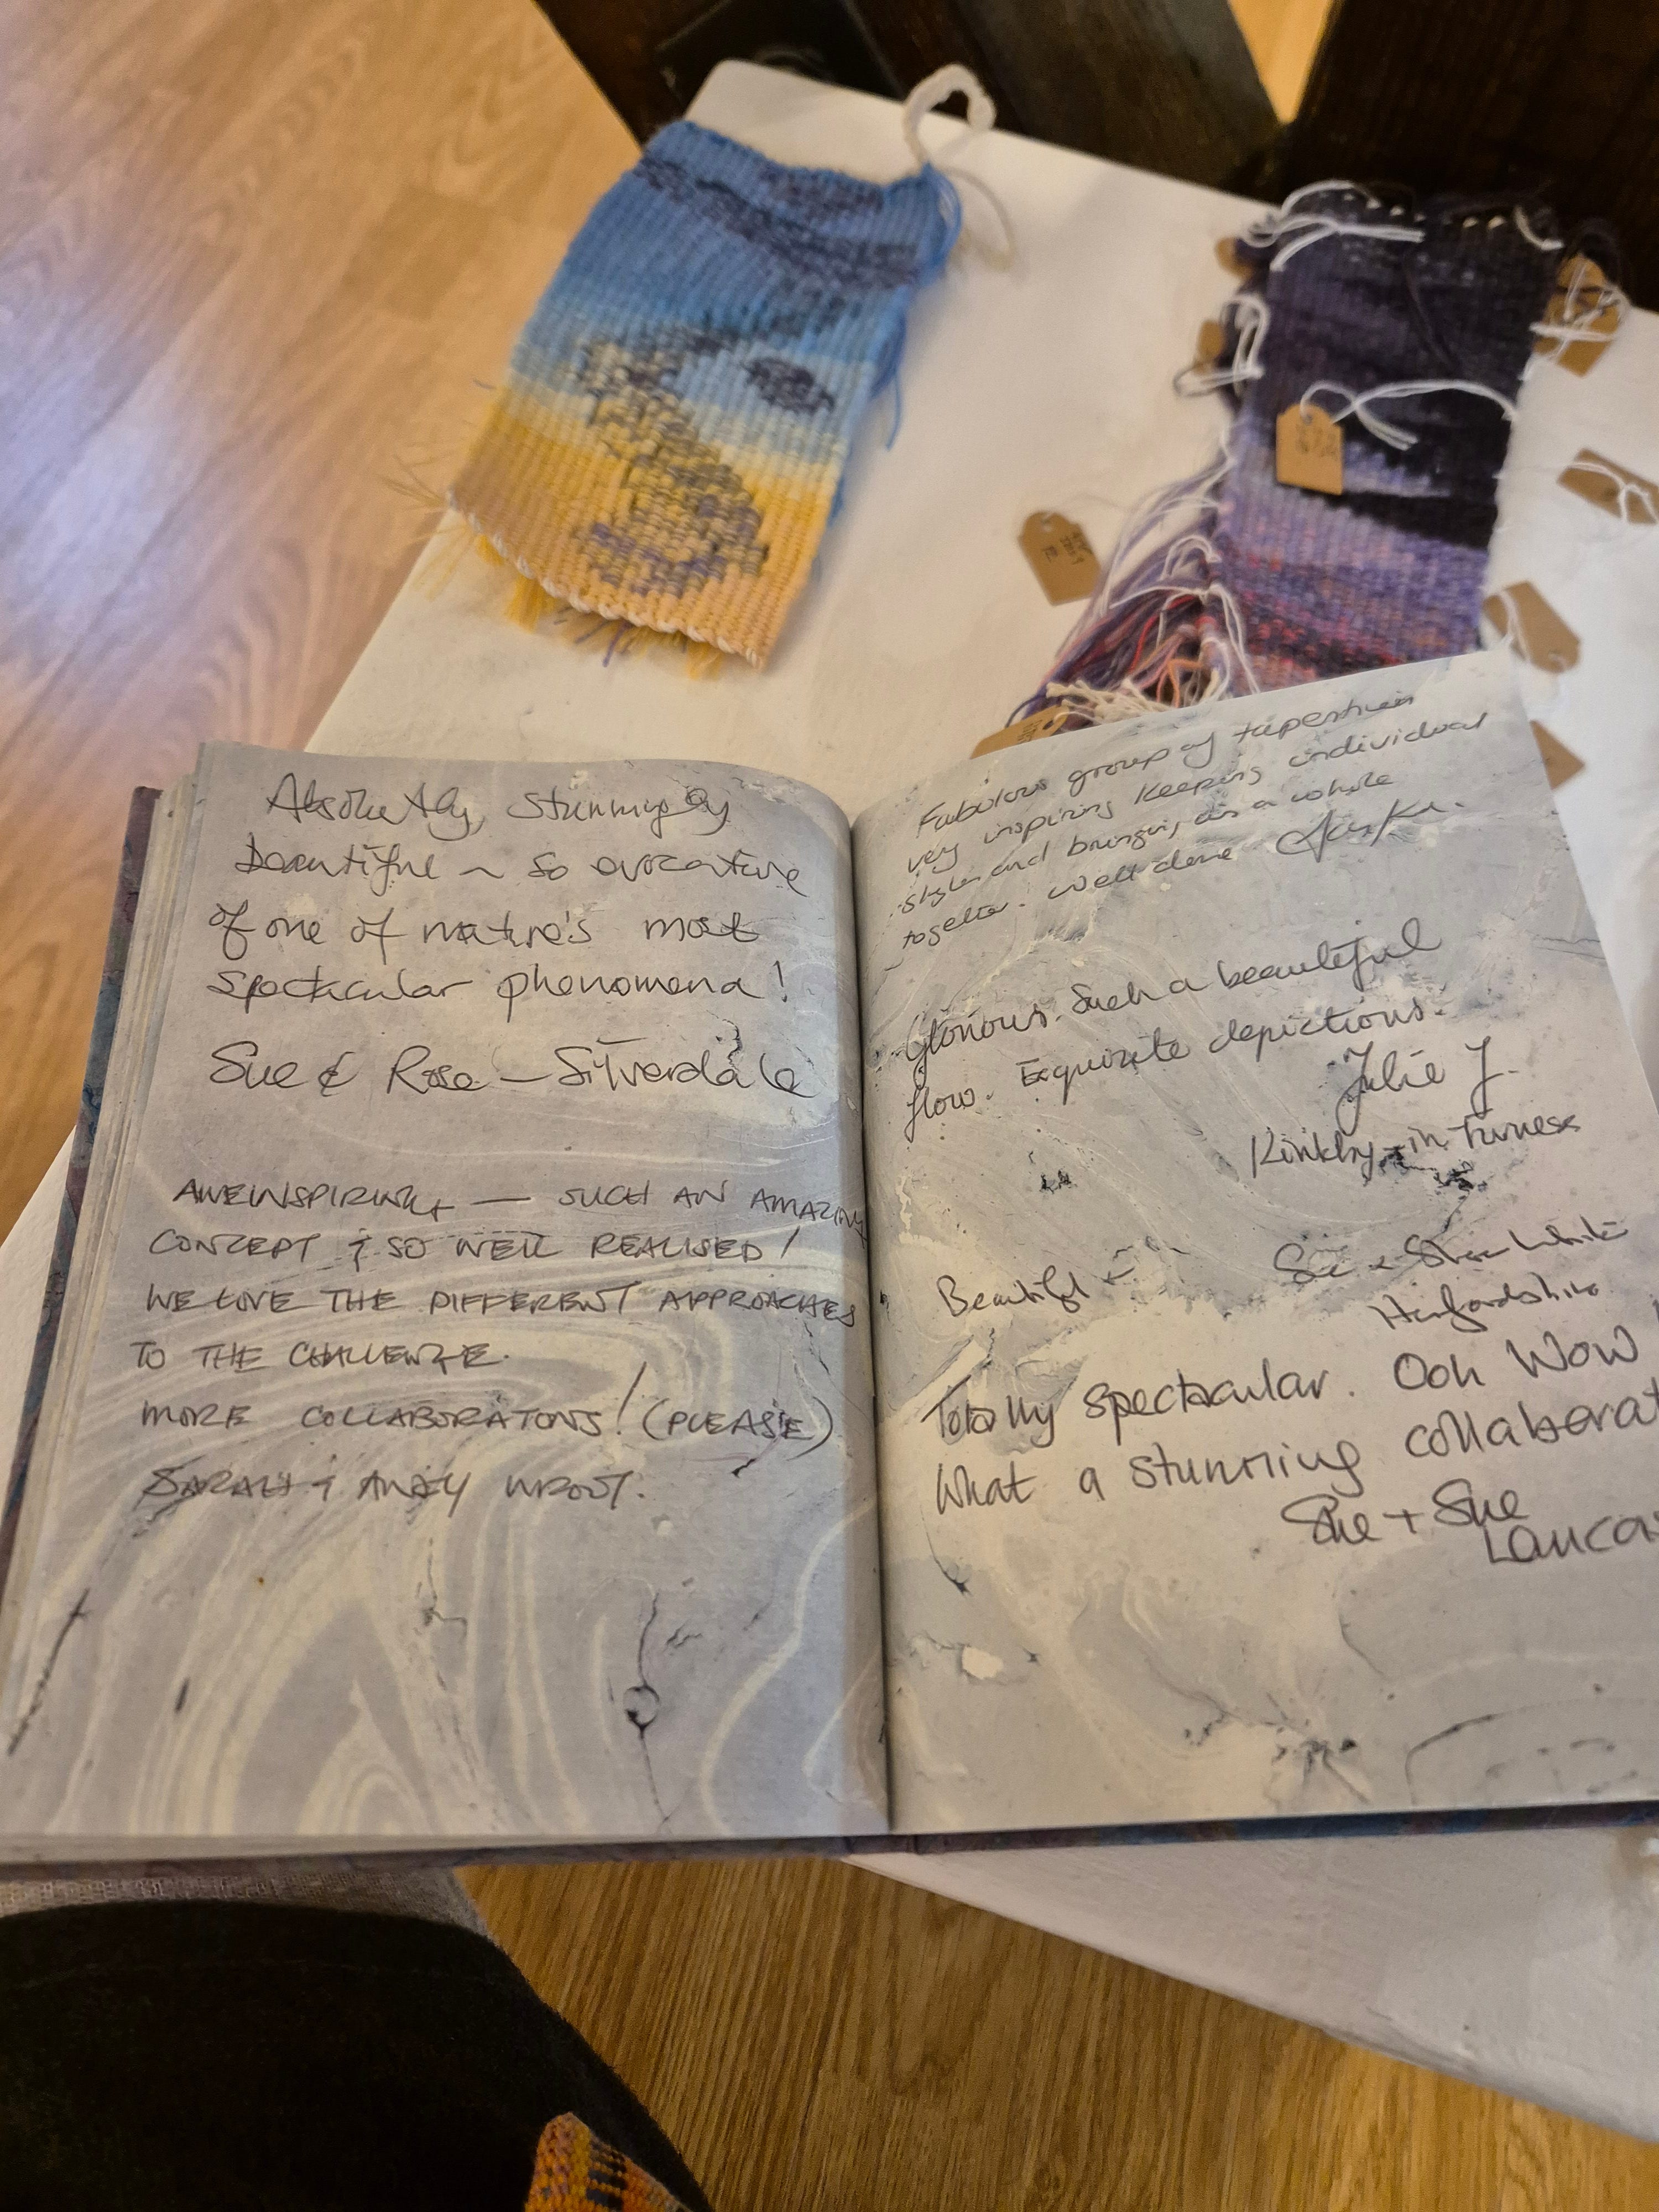 Absolutely, stunningly
beautiful ~ so evocative
of one of nature's most
spectacular phenomena!
Sue & Rose – Silverdale
AWEINSPIRING — SUCH AN AMAZING
CONCEPT & SO WELL REALISED!
WE LOVE THE DIFFERENT APPROACHES
TO THE CHALLENGE.
MORE COLLABORATONS! (PLEASE)
SARAH & ANDY
Fabulous group of tapestries
very inspiring keeping individual
styles and bringing as a whole
together. Well done
Glorious. Such a beautiful
flow. Exquisite depictions.
Julie J.
Kirkby-in-Furness
Beautiful
White
Totally spectacular. Ooh Wow!
What a stunning collaborat
Sue + Sue
Lancas